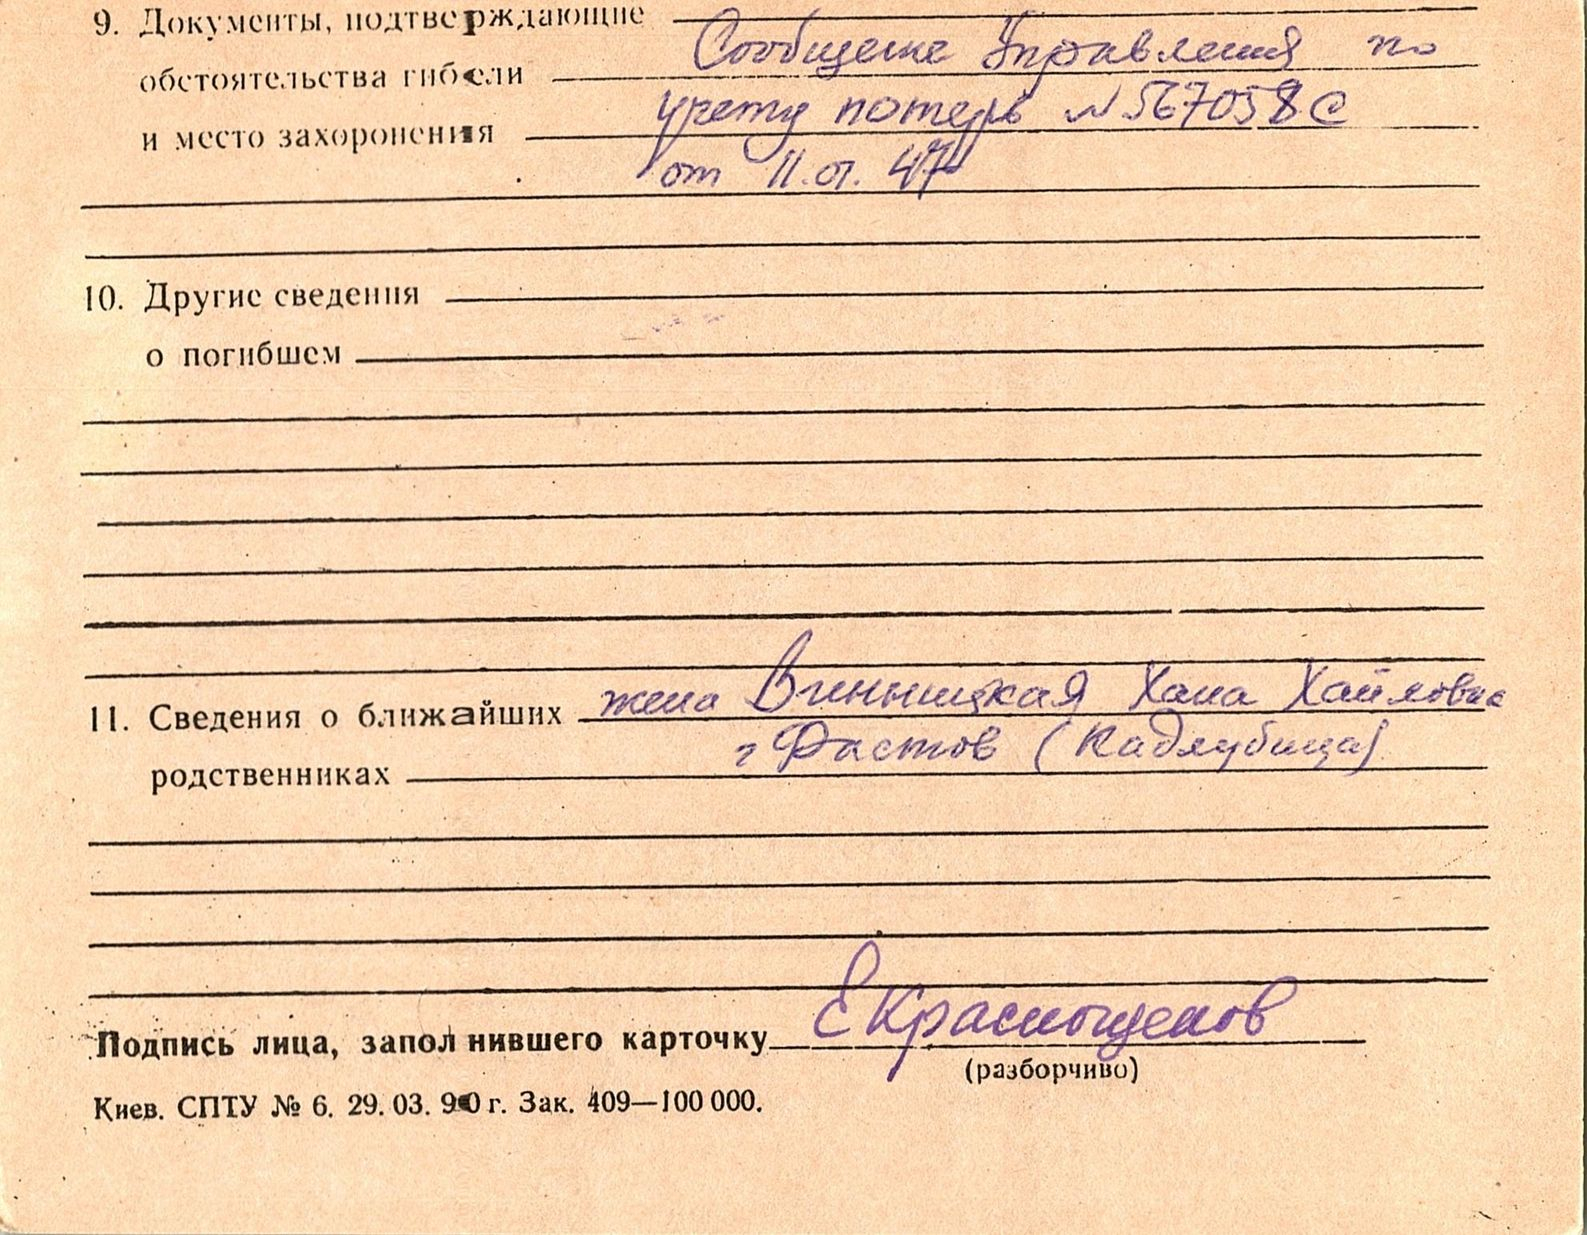 9. Документы, подтверждающие
обстоятельства гибели Сообщение Управления по
и место захоронения учету потерь N 567058с
от 11.01.47
10. Другие сведения
о погибшем
11. Сведения о ближайших жена Винницкая Хана Хаймовна
родственниках г Фастов (Кадлубица)
Подпись лица, заполнившего карточку ЕКраснощеков
(разборчиво)
Киев. СПТУ № 6. 29. 03. 90 г. Зак. 409—100 000.